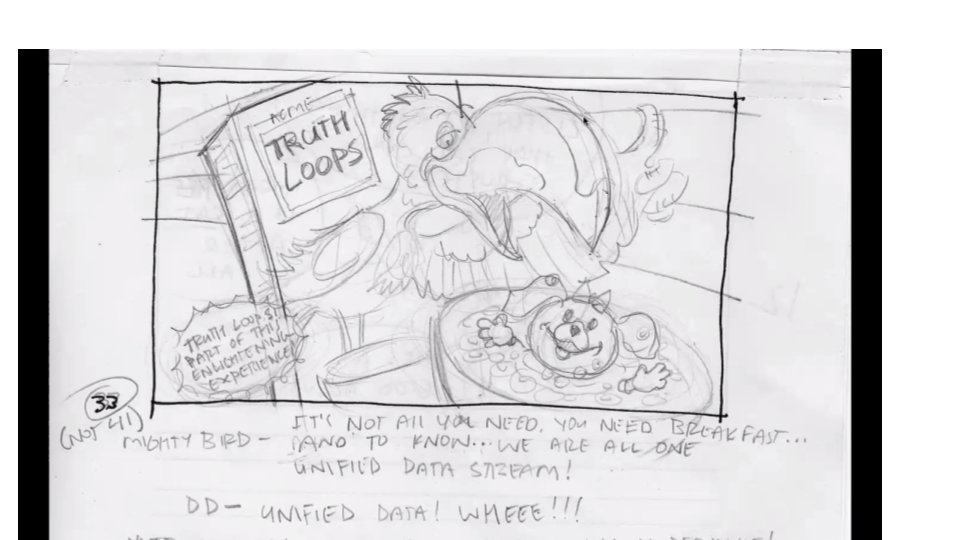 ACME
TRUTH
LOOPS
TRUTH LOOPS!
PART OF THIS
ENLIGHTENING
EXPERIENCE
33
(NOT 41)
MIGHTY BIRD - IT'S NOT All YOU NEED, YOU NEED BREAKFAST...
AND TO KNOW... WE ARE ALL ONE
UNIFIED DATA STREAM!
DD - UNIFIED DATA! WHEEE!!!